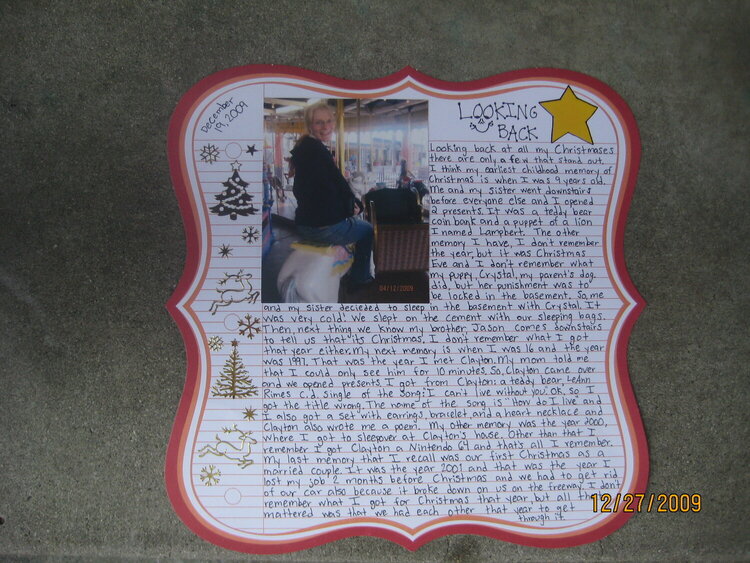 December
19, 2009
LOOKING
BACK
Looking back at all my Christmases
there are only a few that stand out.
I think my earliest childhood memory of
Christmas is when I was 9 years old.
Me and my sister went downstairs
before everyone else and I opened
2 presents. It was a teddy bear
coin bank and a puppet of a lion
I named Lampbert. The other
memory I have, I don't remember
the year, but it was Christmas
Eve and I don't remember what
my puppy, Crystal, my parent's dog
did, but her punishment was to
be locked in the basement. So, me
and my sister decieded to sleep in the basement with Crystal. It
was very cold! We slept on the cement with our sleeping bags.
Then next thing we know my brother, Jason comes downstairs
to tell us that its Christmas. I don't remember what I got
that year either. My next memory is when I was 16 and the year
was 1997. That was the year I met Clayton. My mom told me
that I could only see him for 10 minutes. So, Clayton came over
and we opened presents. I got from Clayton: a teddy bear, LeAnn
Rimes c.d. single of the song: I can't live without you. OK, so I
got the title wrong. The name of the song is How do I live and
I also got a set with earrings, bracelet, and a heart necklace and
Clayton also wrote me a poem. My other memory was the year 2000,
where I got to sleepover at Clayton's house. Other than that I
remember I got Clayton a Nintendo 64 and that's all I remember.
My last memory that I recall was our first Christmas as a
married couple. It was the year 2001 and that was the year I
lost my job 2 months before Christmas and we had to get rid
of our car also because it broke down on us on the freeway. I don't
remember what I got for Christmas that year, but all that
mattered was that we had each other that year to get
through it.
04/12/2009
12/27/2009